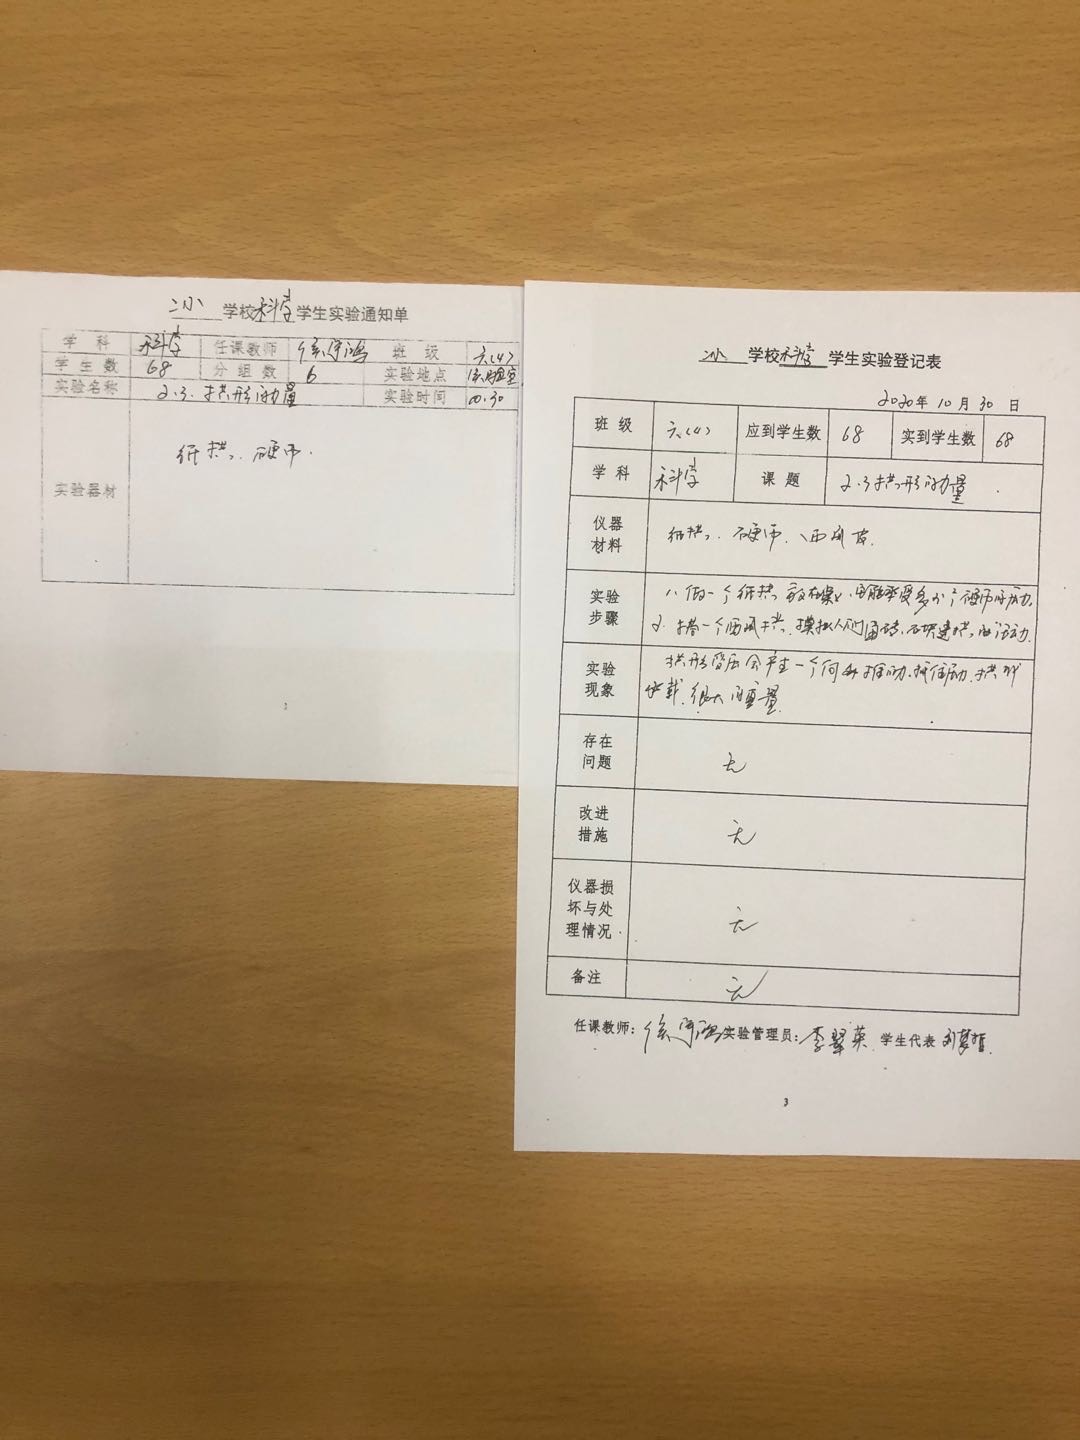 二小 学校科学学生实验通知单
学 科 科学 任课教师 徐 班 级 六(4)
学 生 数 68 分 组 数 6 实验地点 实验室
实验名称 2.3.拱形的力量 实验时间 10.30
实验器材 纸拱、硬币.
二小 学校科学 学生实验登记表
2020年10月30日
班 级 六(4) 应到学生数 68 实到学生数 68
学 科 科学 课 题 2.3拱形的力量
仪器材料 纸拱、硬币、西瓜皮.
实验步骤 1、做一个纸拱 放在桌上,能承受多少个硬币的压力.
2.搭一个西瓜拱.模拟人们用砖,石块建拱的活动.
实验现象 拱形受压会产生一个向外推的力.抵住力.拱就
能承载很大的重量.
存在问题 无
改进措施 无
仪器损坏与处理情况 无
备注 无
任课教师: 徐 实验管理员: 李翠英 学生代表 刘梦
3